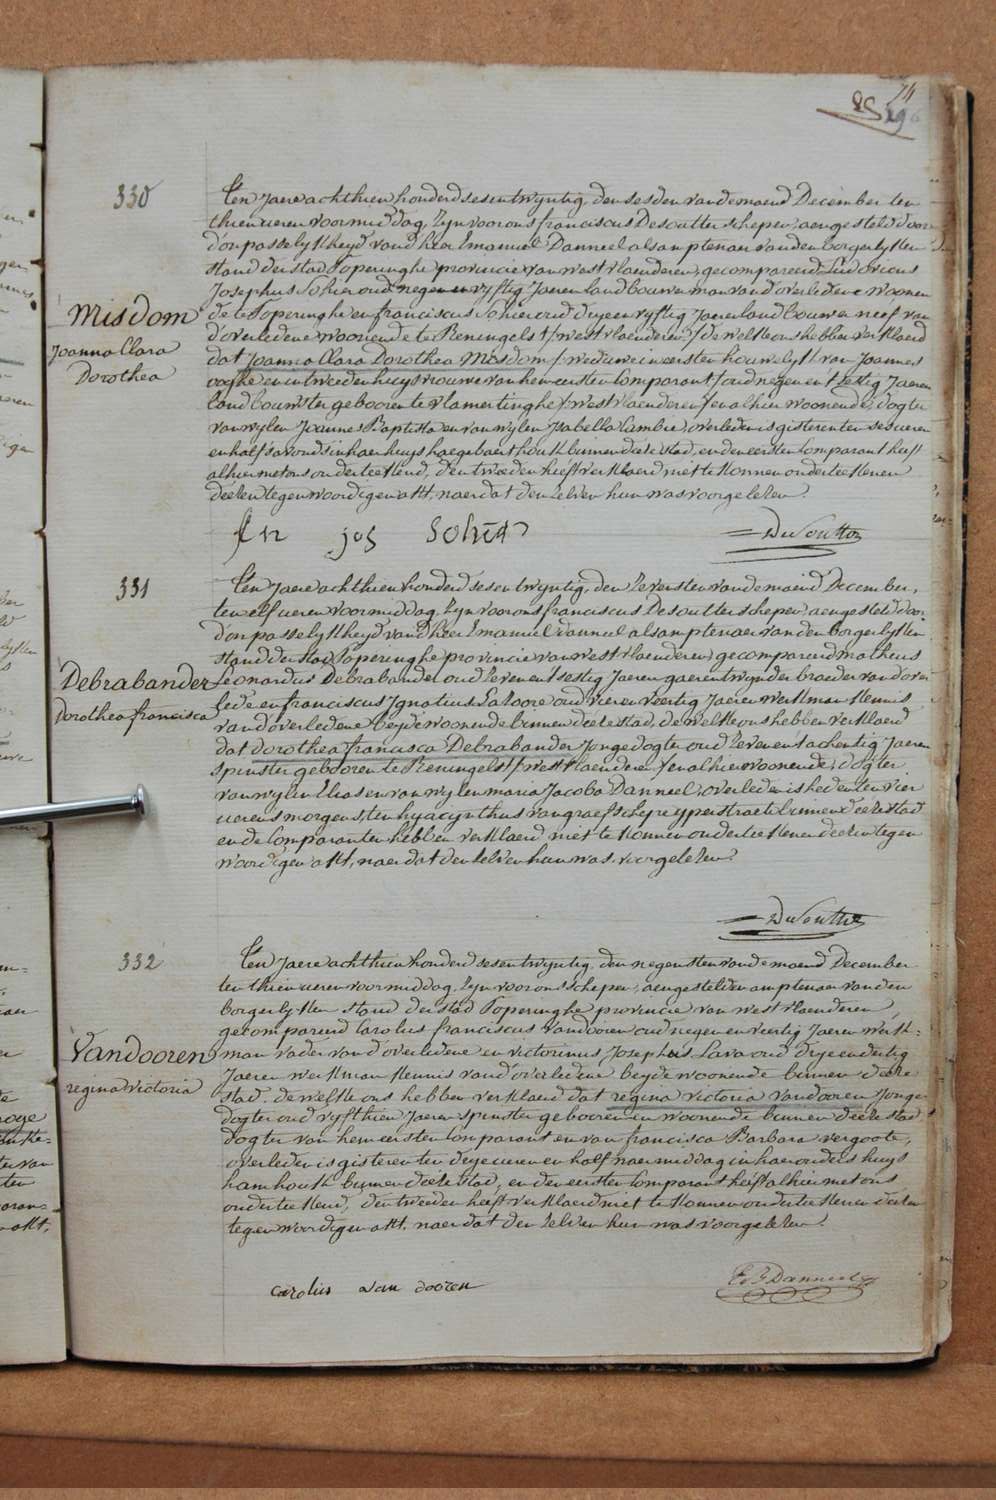 74
85 296
330
Misdom
Joanna Clara
Dorothea
Ten Jaere achthien honderd ses en twyntig, den sesden van de maend December ten
thien ueren voormiddag, Zyn voor ons franciscus Desoutter schepen, aengesteld door
d'onpasselykheyd van d'heer Emanuel Danneel als amptenaer van den borgerlyken
stand der stad Poperinghe provincie van westvlaenderen, gecompareerd Ludovicus
Josephus Sohier oud negen en vyftig Jaeren landbouwer man van d'overledene woonen
de te Poperinghe en franciscus Sohier oud dryeen vyftig Jaeren landbouwer neef van
d'overledene woonende te Reningelst /westvlaenderen/ de welke ons hebben verklaerd
dat Joanna Clara Dorothea Misdom /weduwe in eersten houwelyk van Joannes
ooghe en in tweeden huysvrouwe van hem eersten Comparant/ oud negen en t'sestig Jaeren
landbouwster gebooren te vlamertinghe /westvlaenderen/ en alhier woonende, dogter
van wylen Joannes Baptista en van wylen Isabella Cambie, overleden is gisteren ten ses ueren
en half s'avonds in haer huys haegebaert houk binnen dese stad, en den eersten Comparant heeft
alhier met ons onderteekend, den tweeden heeft verklaerd niet te konnen onderteekenen
deesen tegenwoordigen akt, naer dat den selven hun was voorgelesen.
jos Sohier
Desoutter
331
Debrabander
Dorothea francisca
Ten Jaere achthien honderd ses en twyntig, den Zevensten van de maend December,
ten elf ueren voormiddag, Zyn voor ons franciscus Desoutter schepen, aengesteld door
d'onpasselykheyd van d'heer Emanuel danneel als amptenaer van den borgerlyken
stand der stad Poperinghe provincie van westvlaenderen, gecompareerd matheus
Leonardus Debrabander oud Zeven en t'sestig Jaeren gaerentwynder broeder van d'over
ledene en franciscus Ignatius Lahoore oud vier en veertig Jaeren werkman kennis
van d'overledene beyde woonende binnen deese stad, de welke ons hebben verklaerd
dat dorothea francisca Debrabander Jonge dogter oud Zeven en t'achentig Jaeren
spinster gebooren te Reningelst /westvlaenderen/ en alhier woonende, dogter
van wylen Elias en van wylen maria Jacoba Danneel, overleden is heden ten vier
ueren s'morgens, ten hyacinthus van graefschepe ypperstraete binnen deese stad
en de Comparanten hebben verklaerd niet te konnen onderteekenen deesen tegen
woordigen akt, naer dat den selven hun was voorgelesen.
Desoutter
332
Vandooren
regina victoria
Ten Jaere achthien honderd ses en twyntig, den negensten van de maend December
ten thien ueren voormiddag, Zyn voor ons schepen, aengestelden amptenaer van den
borgerlyken stand der stad Poperinghe provincie van westvlaenderen,
gecompareerd Carolus franciscus vandooren oud negen en veertig Jaeren werk=
man vader van d'overledene en victorinus Josephus Lava oud drye en dertig
Jaeren werkman kennis van d'overledene beyde woonende binnen deese
stad, de welke ons hebben verklaerd dat regina victoria vandooren Jonge
dogter oud vyfthien Jaeren spinster gebooren en woonende binnen deese stad
dogter van hem eersten Comparant en van francisca Barbara vergoote,
overleden is gisteren ten drye ueren en half naermiddag in haer ouders huys
hamhouk binnen deese stad, en den eersten Comparant heeft alhier met ons
onderteekend, den tweeden heeft verklaerd niet te konnen onderteekenen deesen
tegenwoordigen akt, naer dat den selven hun was voorgelesen.
carolus van dooren
Danneel